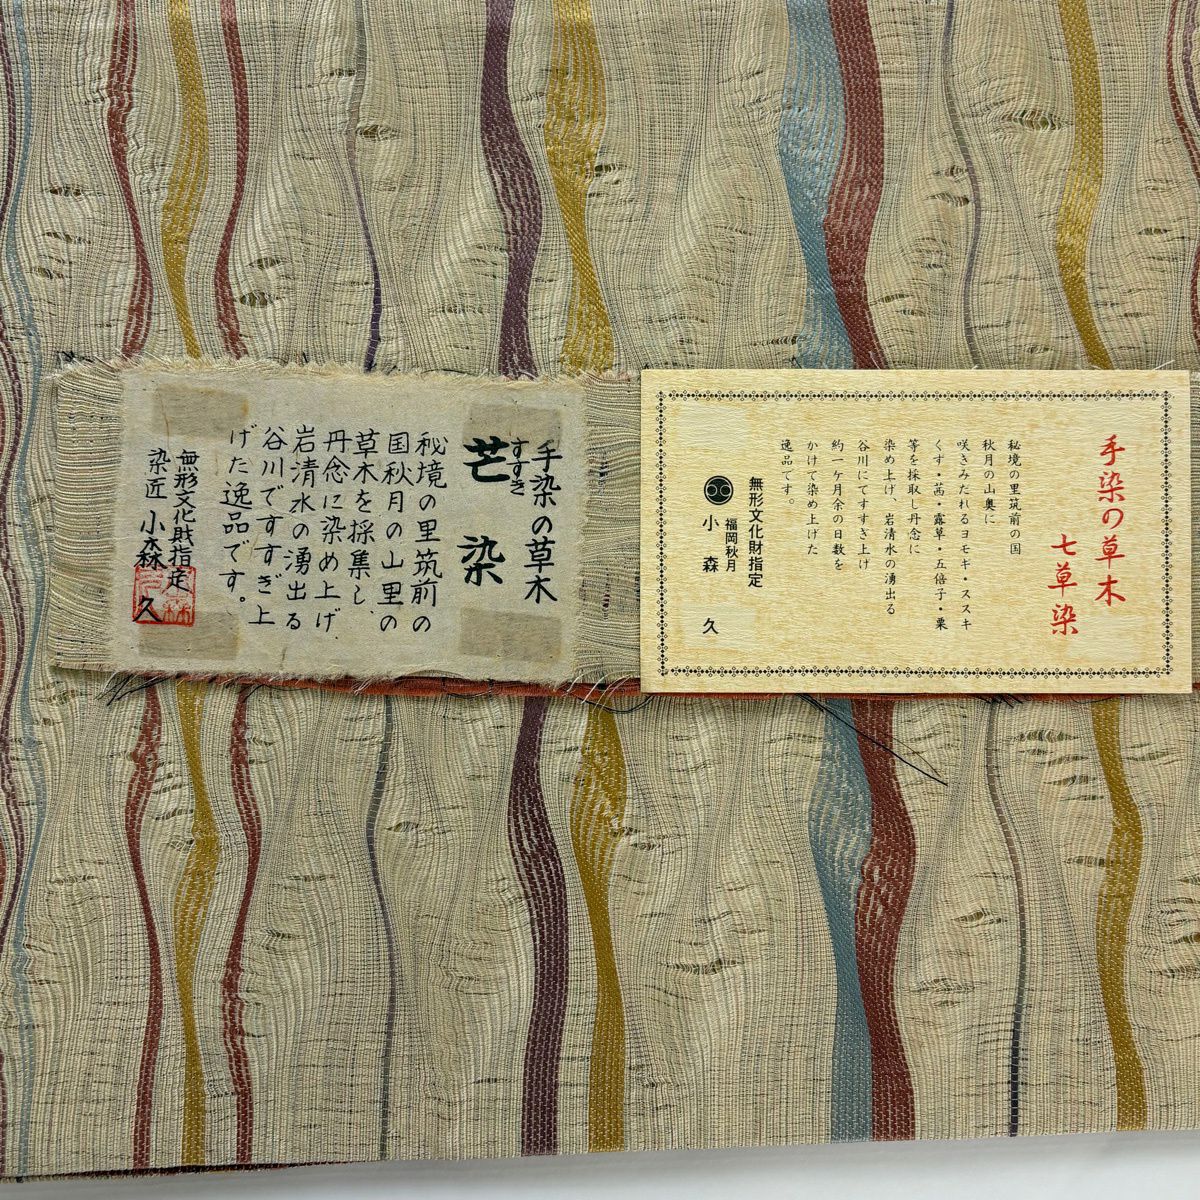 手染の草木
七草染
秘境の里筑前の国
秋月の山奥に
咲きみだれるヨモギ・ススキ
くす・茜・露草・五倍子・栗
等を採取し丹念に
染め上げ、岩清水の湧出る
谷川にてすすぎ上げ
約一ヶ月余の日数を
かけて染め上げた
逸品です。
無形文化財指定
福岡秋月
小森 久
手染の草木
すすき
芒染
秘境の里筑前の
国秋月の山里の
草木を採集し、
丹念に染め上げ、
岩清水の湧出る
谷川ですすぎ上
げた逸品です。
無形文化財指定
染匠 小森 久